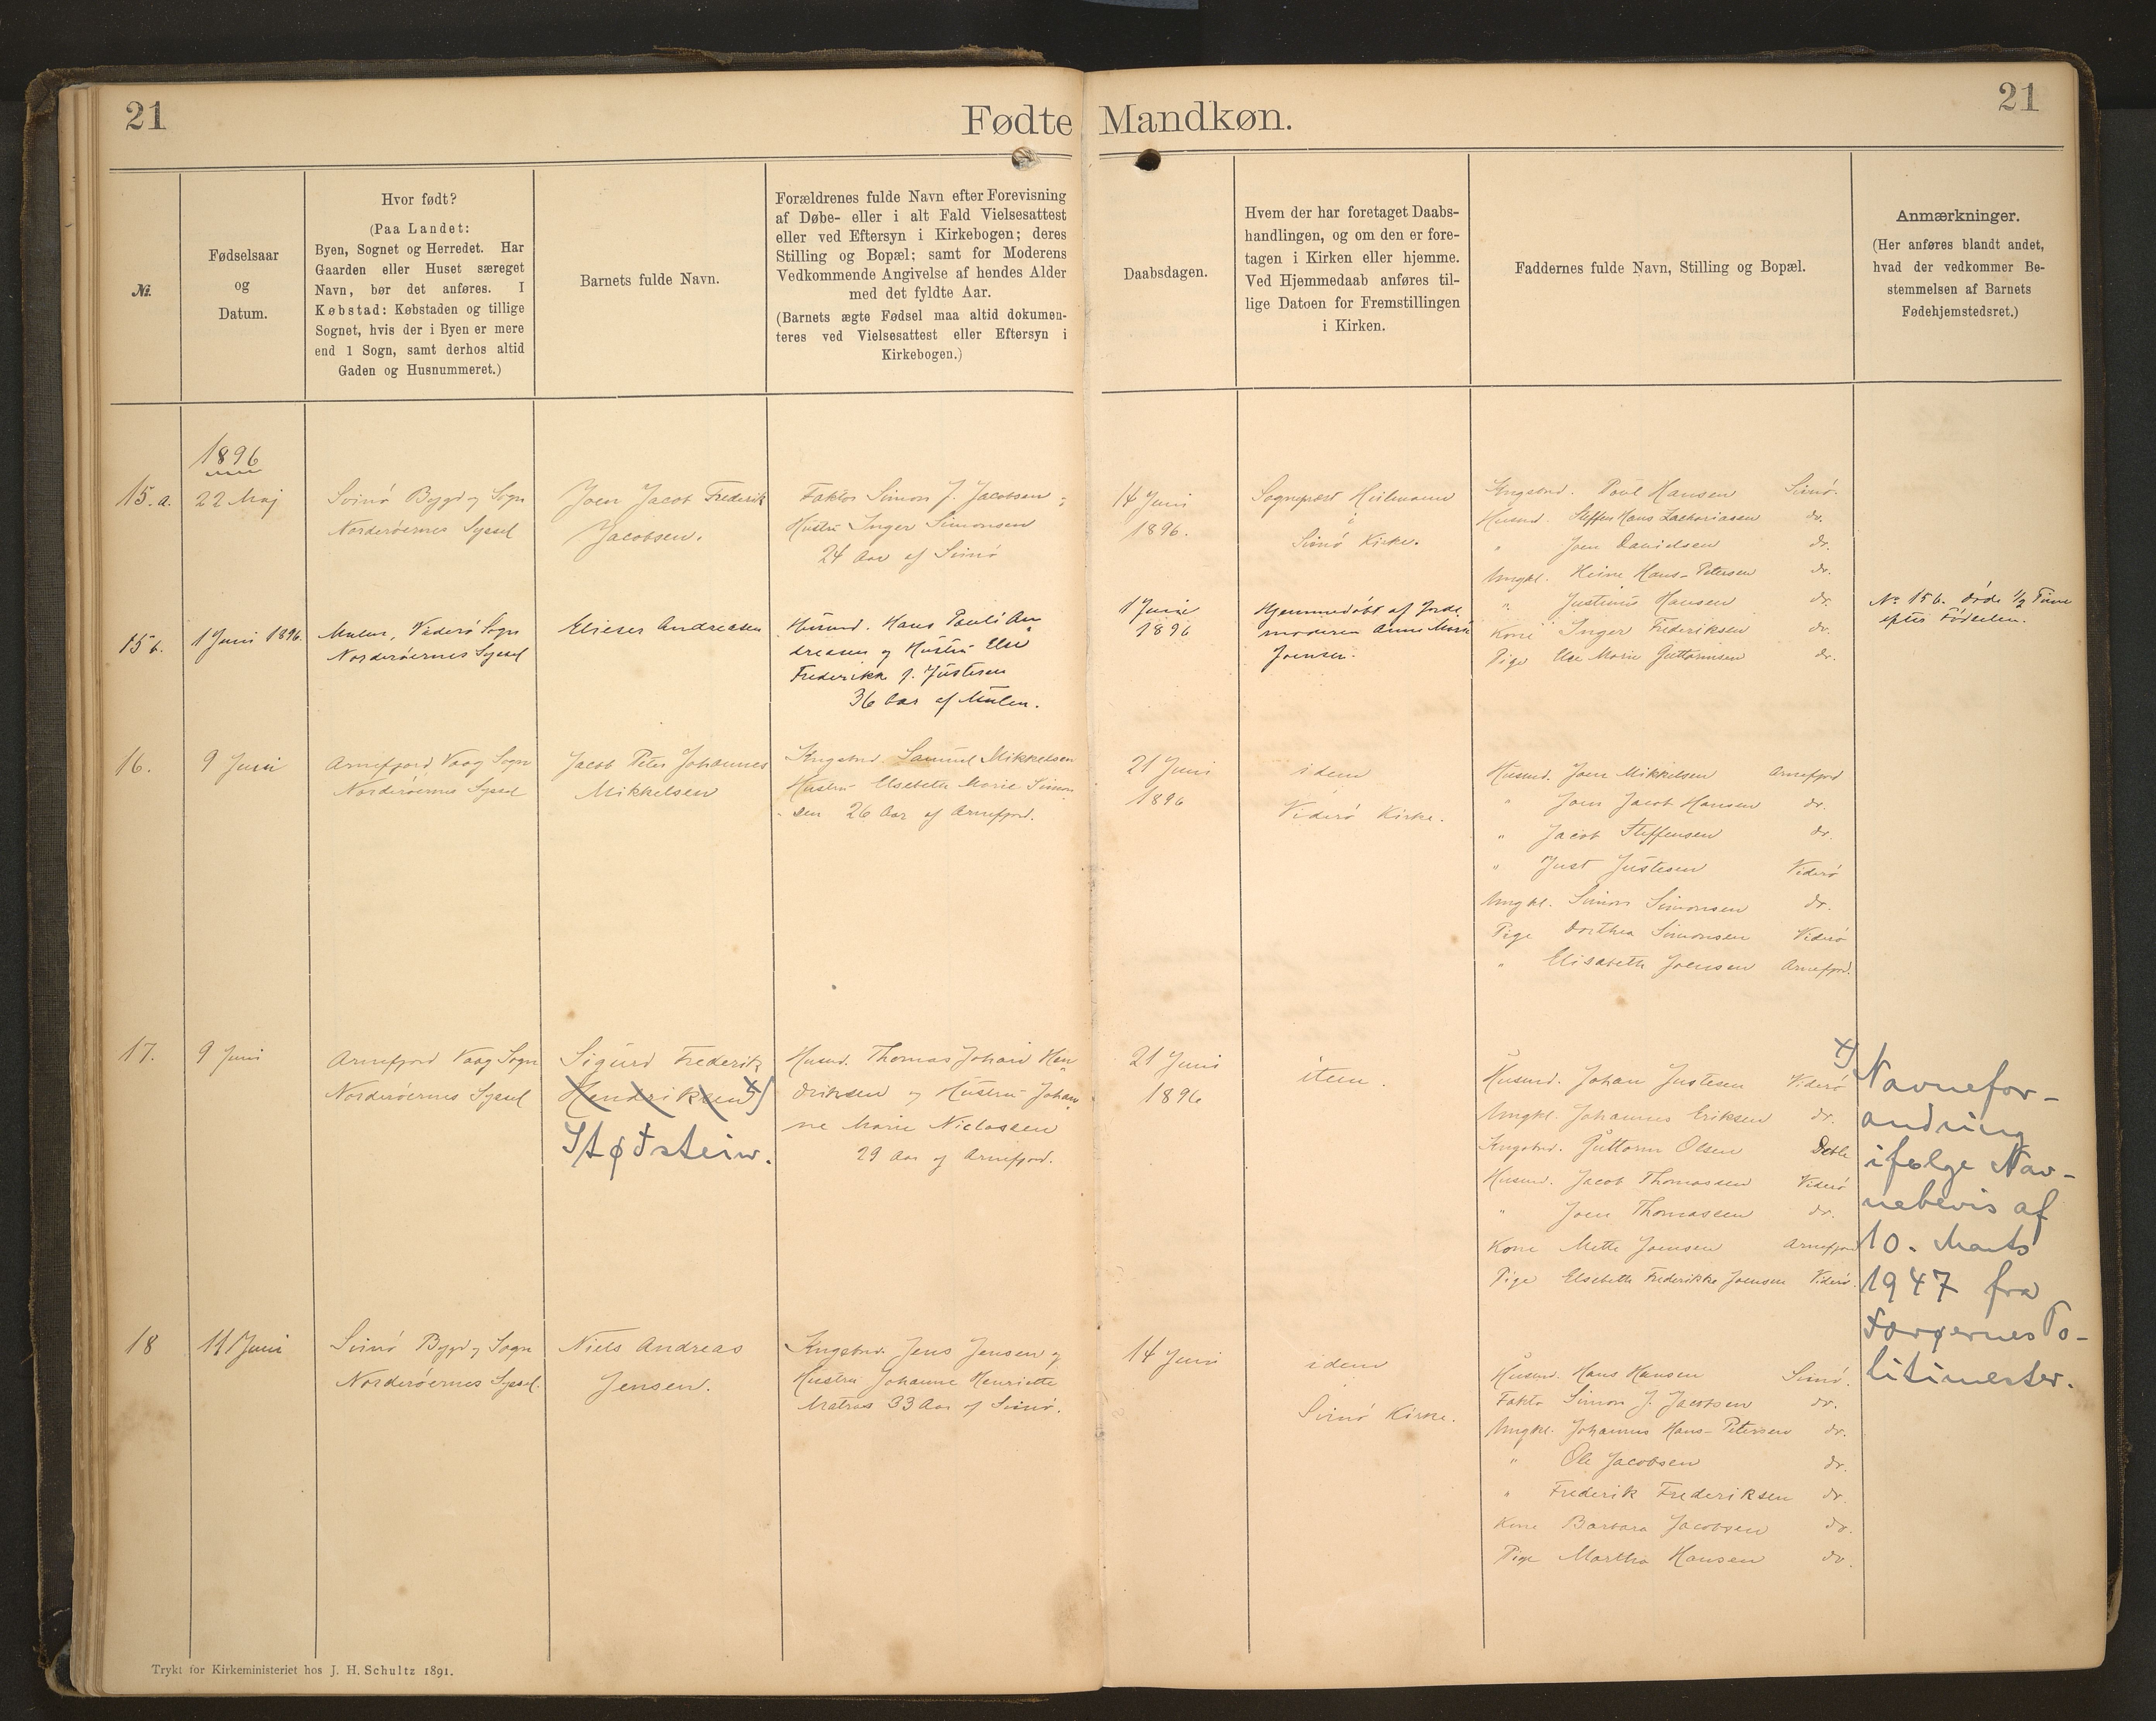 21
Fødte Mandkøn.
21
No.
Fødselsaar
og
Datum.
Hvor født?
(Paa Landet:
Byen, Sognet og Herredet. Har
Gaarden eller Huset særeget
Navn, bør det anføres. I
Købstad: Købstaden og tillige
Sognet, hvis der i Byen er mere
end 1 Sogn, samt derhos altid
Gaden og Husnummeret.)
Barnets fulde Navn.
Forældrenes fulde Navn efter Forevisning
af Døbe- eller i alt Fald Vielsesattest
eller ved Eftersyn i Kirkebogen; deres
Stilling og Bopæl; samt for Moderens
Vedkommende Angivelse af hendes Alder
med det fyldte Aar.
(Barnets ægte Fødsel maa altid dokumen-
teres ved Vielsesattest eller Eftersyn i
Kirkebogen.)
Daabsdagen.
Hvem der har foretaget Daabs-
handlingen, og om den er fore-
tagen i Kirken eller hjemme.
Ved Hjemmedaab anføres til-
lige Datoen for Fremstillingen
i Kirken.
Faddernes fulde Navn, Stilling og Bopæl.
Anmærkninger.
(Her anføres blandt andet,
hvad der vedkommer Be-
stemmelsen af Barnets
Fødehjemstedsret.)
1896
15.a.
22 Maj
Svinö Bygd og Sogn
Norderöernes Syssel
Joen Jacob Frederik
Jacobsen.
Faktor Simon J. Jacobsen
Hustru Inger Simonsen
24 Aar af Svinö
14 Juni
1896.
Sognepræst Heilmann
i
Svinö Kirke.
Kngsbnd. Poul Hansen Svinö.
Husmd. Steffen Hans Zachariasen do.
" Joen Danielsen do.
Ungkl. Heine Hans-Petersen do.
" Justinus Hansen do.
Kone Inger Frederiksen do.
Pige Else Marie Guttormsen do.
15b.
1 Juni 1896.
Mulen, Viderö Sogn
Norderöernes Syssel
Elieser Andreasen
Husmd. Hans Pauli An
dreasen og Hustru Else
Frederikke f. Justesen
36 Aar af Mulen.
1 Juni
1896
Hjemmedöbt af Jorde
moderen Anne Marie
Joensen.
No 15b. döde 1/2 Time
efter Födselen.
16.
9 Juni
Arnefjord, Vaag Sogn
Norderöernes Syssel
Jacob Peter Johannes
Mikkelsen
Kngsbnd. Samuel Mikkelsen
Hustru Elsebeth Marie Simon
sen 26 Aar af Arnefjord.
21 Juni
1896
idem
Viderö Kirke.
Husmd. Joen Mikkelsen Arnefjord
" Joen Jacob Hansen do.
" Jacob Steffensen do.
" Just Justesen Viderö
Ungkl. Simon Simonsen do.
Pige Dorthea Simonsen Viderö
" Elisabeth Joensen Arnefjord.
17.
9 Juni
Arnefjord Vaag Sogn
Norderöernes Syssel
Sigurd Frederik
Hendriksen x)
Støtstein.
Husmd. Thomas Johan Hen
driksen og Hustru Johan
ne Marie Niclassen
29 Aar af Arnefjord.
21 Juni
1896
item.
Husmd. Johan Justesen Viderö
Ungkl. Johannes Eriksen do.
Kngsbnd. Guttorm Olsen Deble
Husmd. Jacob Thomassen Viderö
" Joen Thomassen do.
Kone Mette Joensen Arnefjord
Pige Elsebeth Frederikke Joensen Viderö.
x) Navnefor-
andring
ifølge Nav-
nebevis af
10. Marts
1947 fra
Færøernes Po-
litimester.
18
11 Juni
Svinö Bygd og Sogn
Norderöernes Syssel.
Niels Andreas
Jensen.
Kngsbnd. Jens Jensen og
Hustru Johanne Henriette
Matras 33 Aar af Svinö.
14 Juni
idem
Svinö Kirke.
Husmd. Hans Hansen Svinö.
Faktor Simon J. Jacobsen do.
Ungkl. Johannes Hans-Petersen do.
" Ole Jacobsen do.
" Frederik Frederiksen do.
Kone Barbara Jacobsen do.
Pige Martha Hansen do.
Trykt for Kirkeministeriet hos J. H. Schultz 1891.